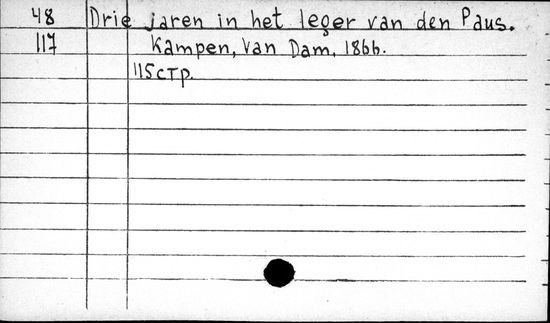 48 Drie jaren in het leger van den Paus.
117 Kampen, Van Dam, 1866.
115 стр.